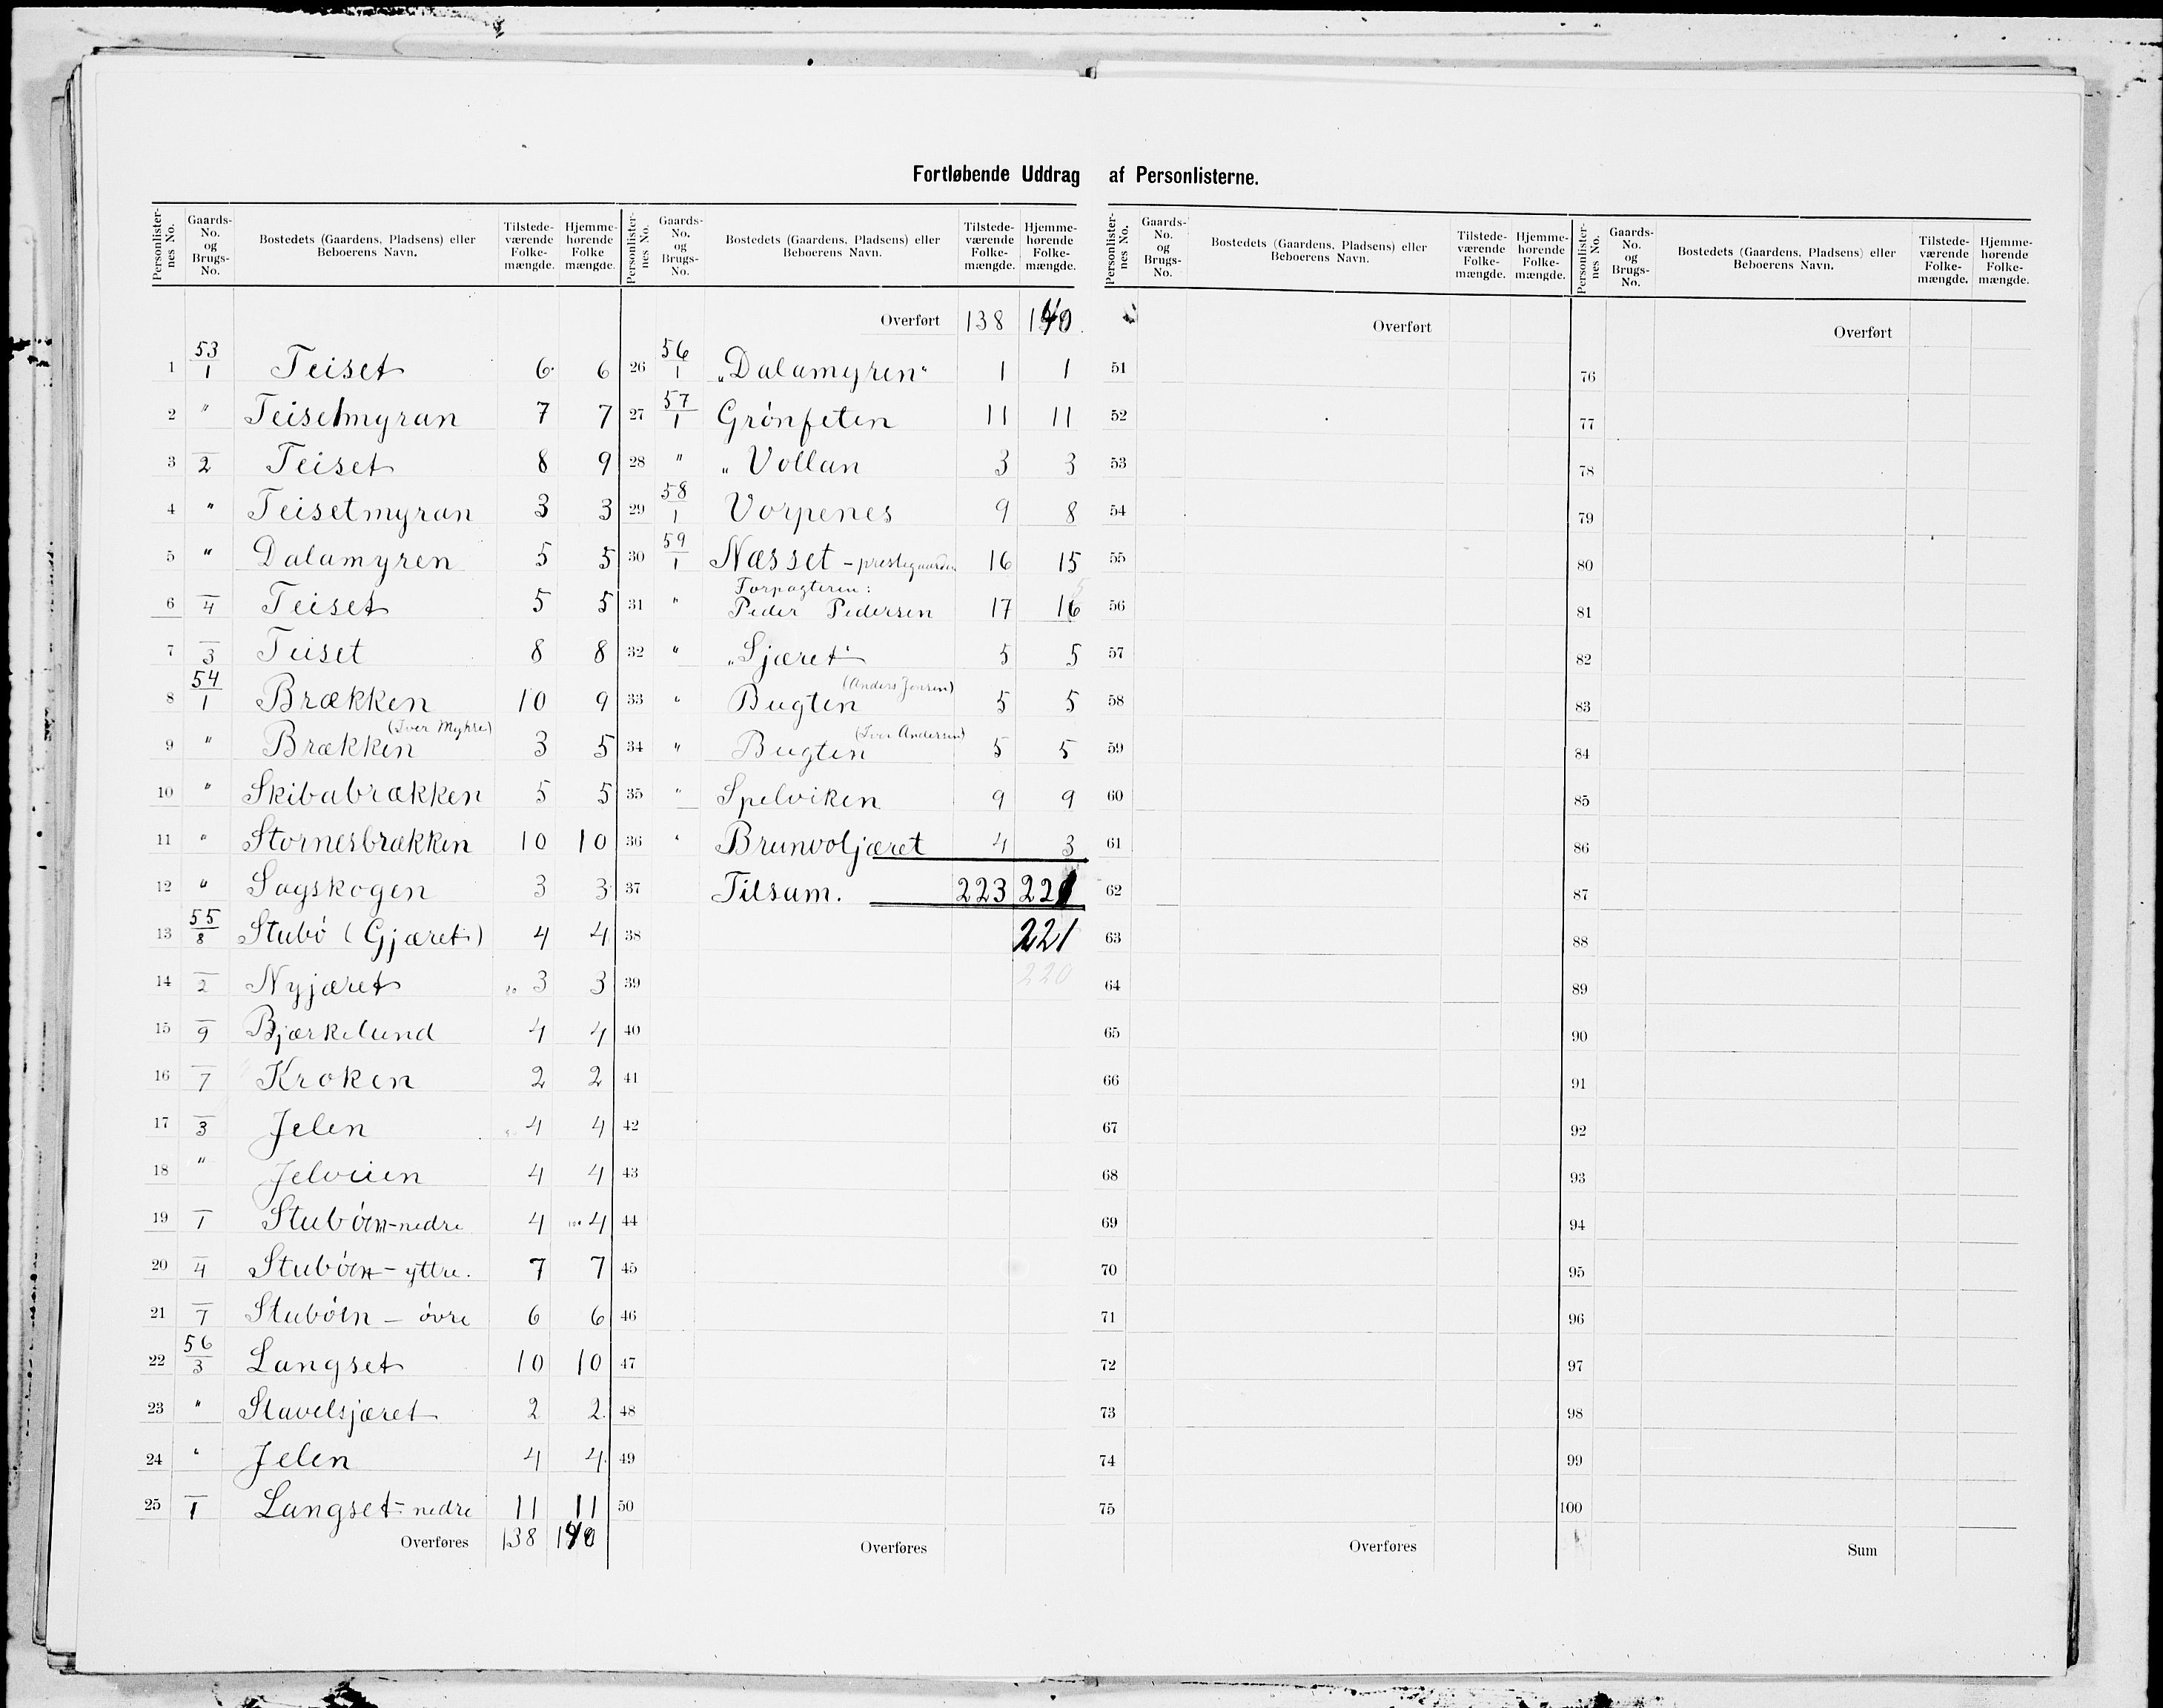 Fortløbende Uddrag af Personlisterne.
Personlister-nes No. Gaards-No. og Brugs-No. Bostedets (Gaardens, Pladsens) eller Beboerens Navn. Tilstede-værende Folke-mængde. Hjemme-hørende Folke mængde.
1 53/1 Teiset 6 6
2 " Teisetmyran 7 7
3 2 Teiset 8 9
4 " Teisetmyran 3 3
5 " Dalamyren 5 5
6 4 Teiset 5 5
7 3 Teiset 8 8
8 54/1 Brækken 10 9
9 " Brækken (Iver Myhre) 3 5
10 " Skibabrækken 5 5
11 " Stornesbrækken 10 10
12 " Sagskogen 3 3
13 55/8 Stubö (Gjæret) 4 4
14 2 Nyjæret 3 3
15 9 Bjærkelund 4 4
16 7 Kroken 2 2
17 3 Jelen 4 4
18 " Jelveien 4 4
19 1 Stuböen-nedre 4 4
20 4 Stuböen-yttre. 7 7
21 7 Stuböen - övre 6 6
22 56/3 Langset 10 10
23 " Stavelsjæret 2 2
24 " Jelen 4 4
25 1 Langset-nedre 11 11
Overføres 138 140
Personlister-nes No. Gaards-No. og Brugs-No. Bostedets (Gaardens, Pladsens) eller Beboerens Navn. Tilstede-værende Folke-mængde. Hjemme-hørende Folke-mængde.
Overført 138 140
26 56/1 "Dalamyren" 1 1
27 57/1 Grönfeten 11 11
28 " "Vollan 3 3
29 58/1 Vorpenes 9 8
30 59/1 Næsset - prestegaarden 16 15
31 " Forpagteren:
Peder Pedersen 17 16
32 " "Sjæret" 5 5
33 " Bugten (Anders Jensen) 5 5
34 " Bugten (Iver Andersen) 5 5
35 " Spelviken 9 9
36 " Brunvoljæret 4 3
37 Tilsam. 223 221
38 221
39 220
40
41
42
43
44
45
46
47
48
49
50
Overføres
Personlister-nes No. Gaards-No. og Brugs-No. Bostedets (Gaardens, Pladsens) eller Beboerens Navn. Tilstede-værende Folke-mængde. Hjemme-hørende Folke-mængde.
Overført
51
52
53
54
55
56
57
58
59
60
61
62
63
64
65
66
67
68
69
70
71
72
73
74
75
Overføres
Personlister-nes No. Gaards-No. og Brugs-No. Bostedets (Gaardens, Pladsens) eller Beboerens Navn. Tilstede-værende Folke-mængde. Hjemme-hørende Folke-mængde.
Overført
76
77
78
79
80
81
82
83
84
85
86
87
88
89
90
91
92
93
94
95
96
97
98
99
100
Sum